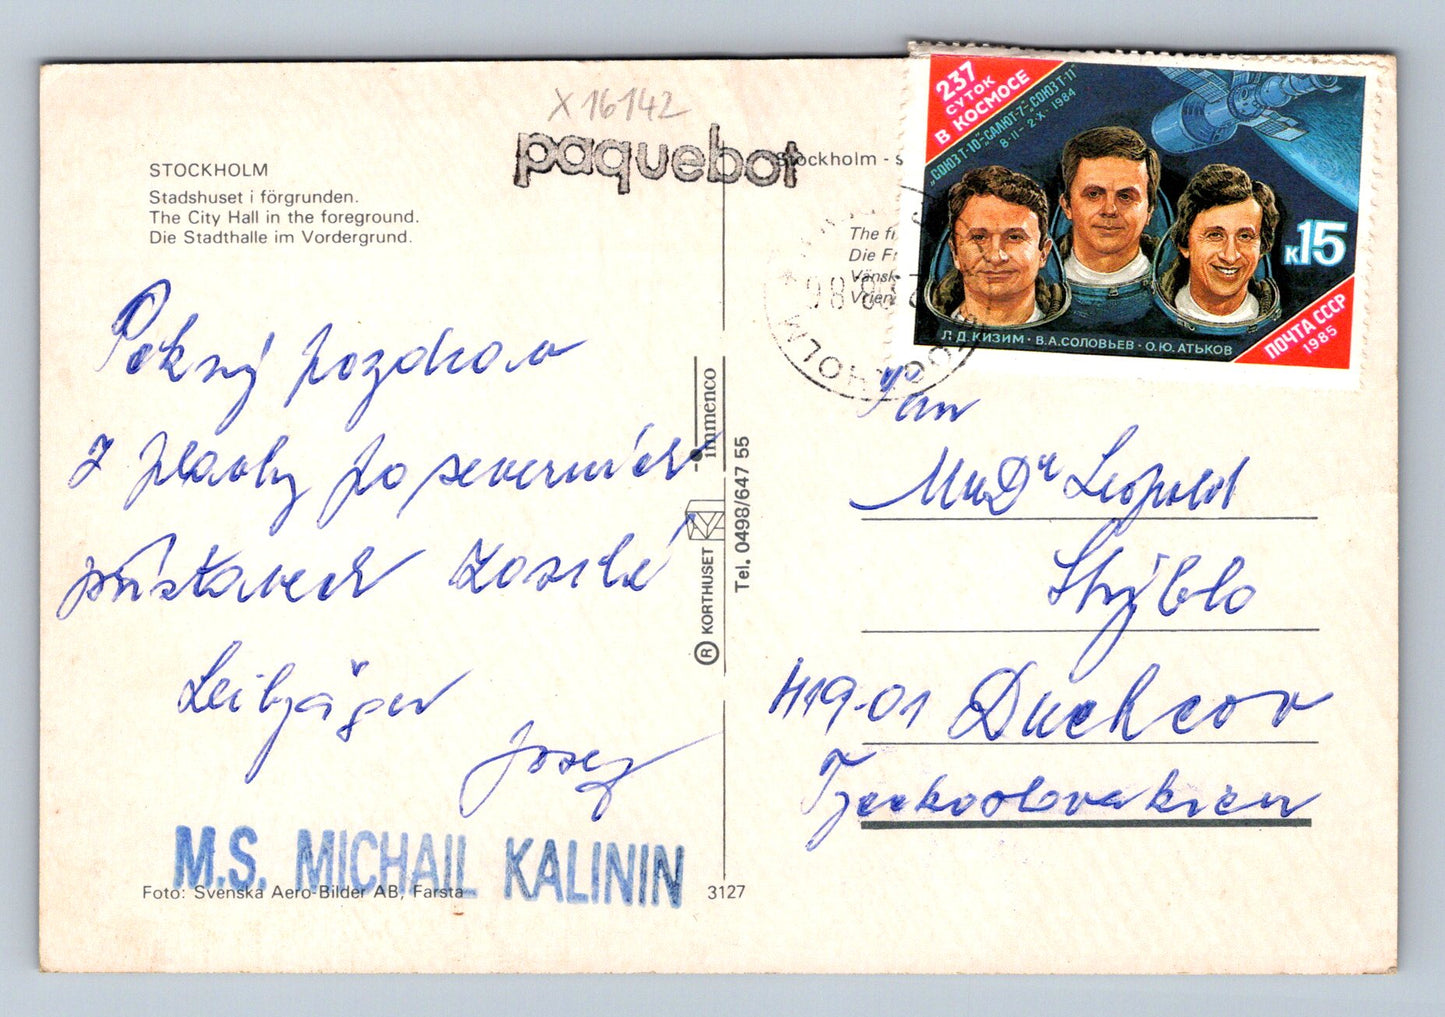 X 16142
paquebot
STOCKHOLM
Stadshuset i förgrunden.
The City Hall in the foreground.
Die Stadthalle im Vordergrund.
Pekný pozdrav
z plavby po severních
přístavech zasílá
Leibjäger
Josef
M.S. MICHAIL KALININ
Foto: Svenska Aero-Bilder AB, Farsta
3127
immenco
Tel. 0498/647 55
® KORTHUSET
Stockholm - s
The fr
Die Fr
Vänsk
Vrien
237
СУТОК
В КОСМОСЕ
„СОЮЗ Т-10"-„САЛЮТ-7"-„СОЮЗ Т-11"
8·II - 2·X· 1984
к15
Л.Д.КИЗИМ · В.А.СОЛОВЬЕВ · О.Ю.АТЬКОВ
ПОЧТА СССР
1985
Pan
MuDr Leopold
Stýblo
419-01 Duchcov
Tzeckoslovakien